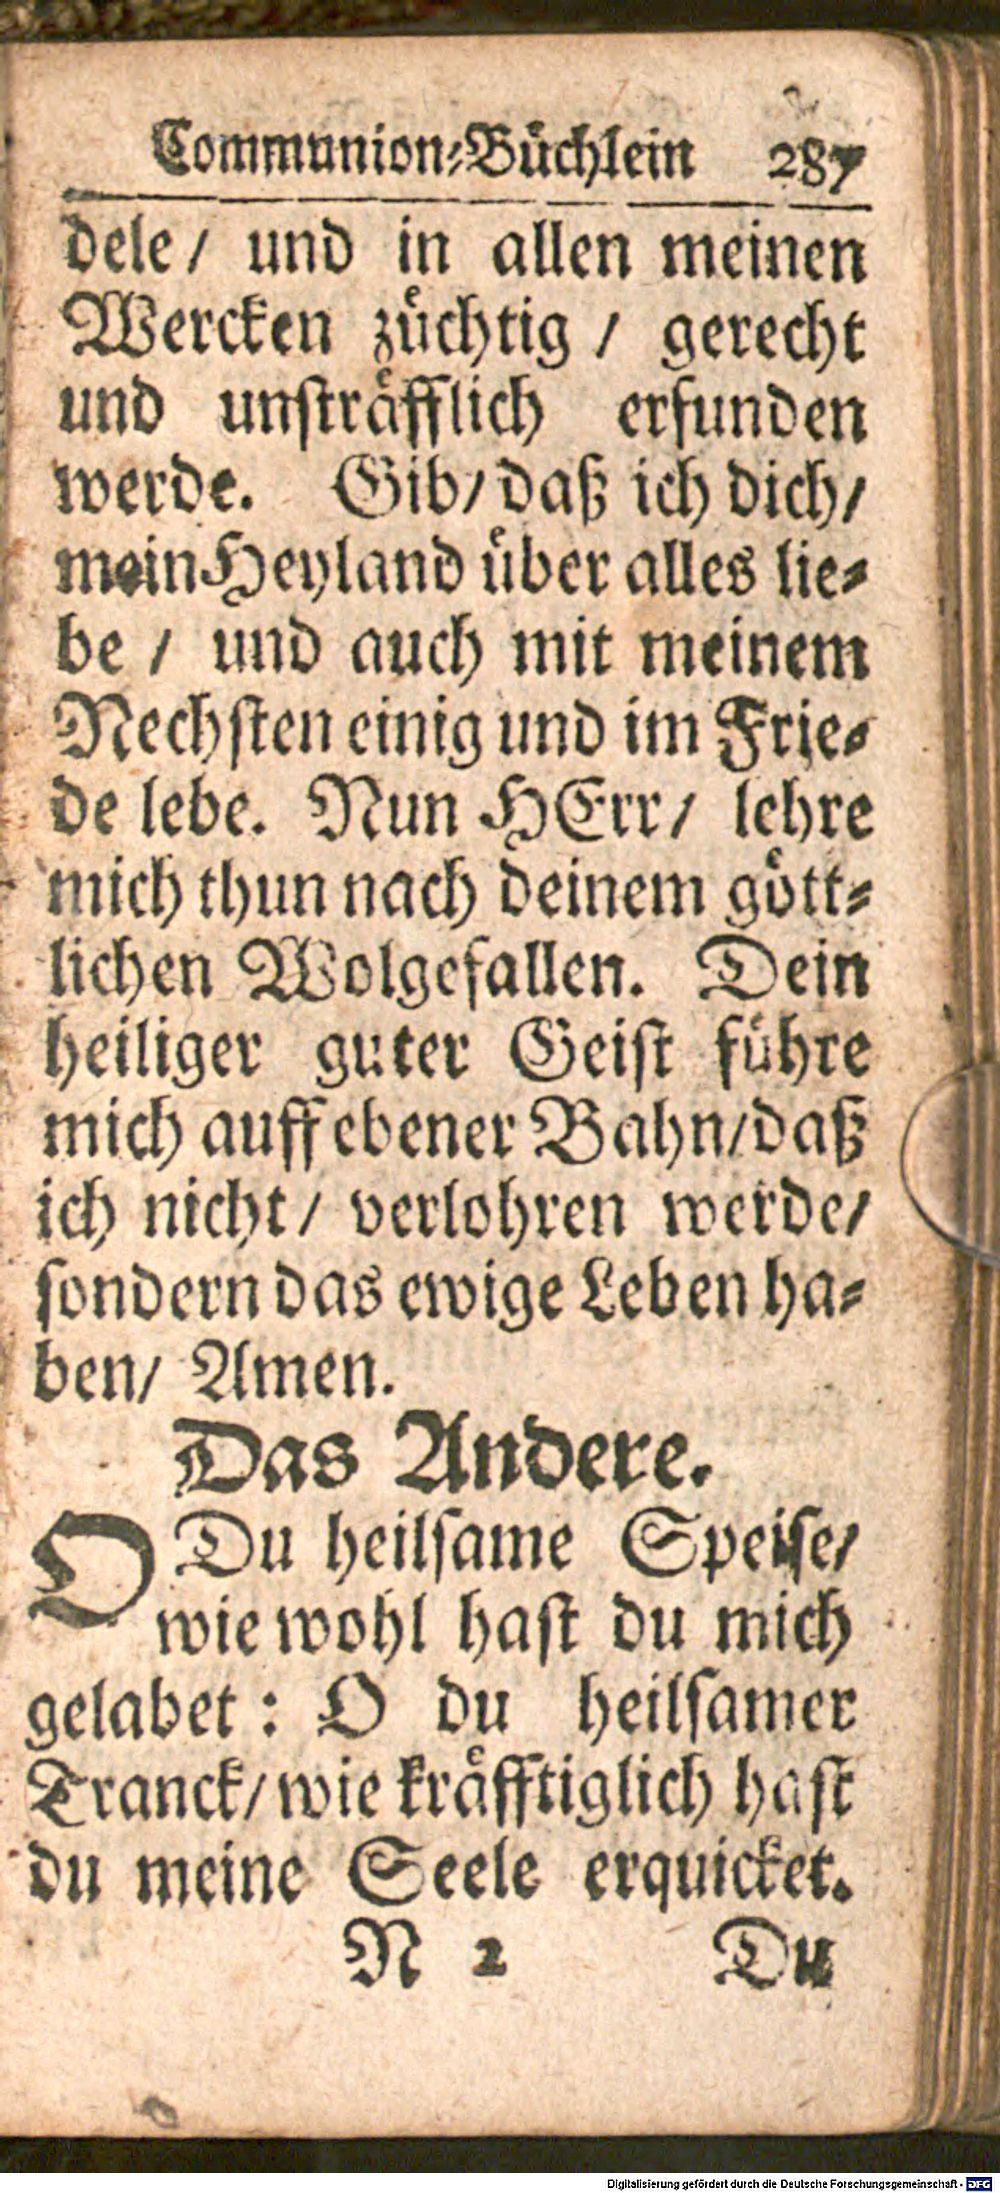 Communion-Bůchlein 287
dele/ und in allen meinen
Wercken zůchtig / gerecht
und unſtråfflich erfunden
werde. Gib/ daß ich dich/
mein Heyland ůber alles lie-
be / und auch mit meinem
Nechſten einig und im Frie-
de lebe. Nun HErr/ lehre
mich thun nach deinem gött-
lichen Wolgefallen. Dein
heiliger guter Geiſt führe
mich auff ebener Bahn/ daß
ich nicht/ verlohren werde/
ſondern das ewige Leben ha-
ben/ Amen.
Das Andere.
O Du heilſame Speiſe/
wie wohl haſt du mich
gelabet: O du heilſamer
Tranck/ wie kråfftiglich haſt
du meine Seele erquicket.
N 2 Du
Digitalisierung gefördert durch die Deutsche Forschungsgemeinschaft - DFG